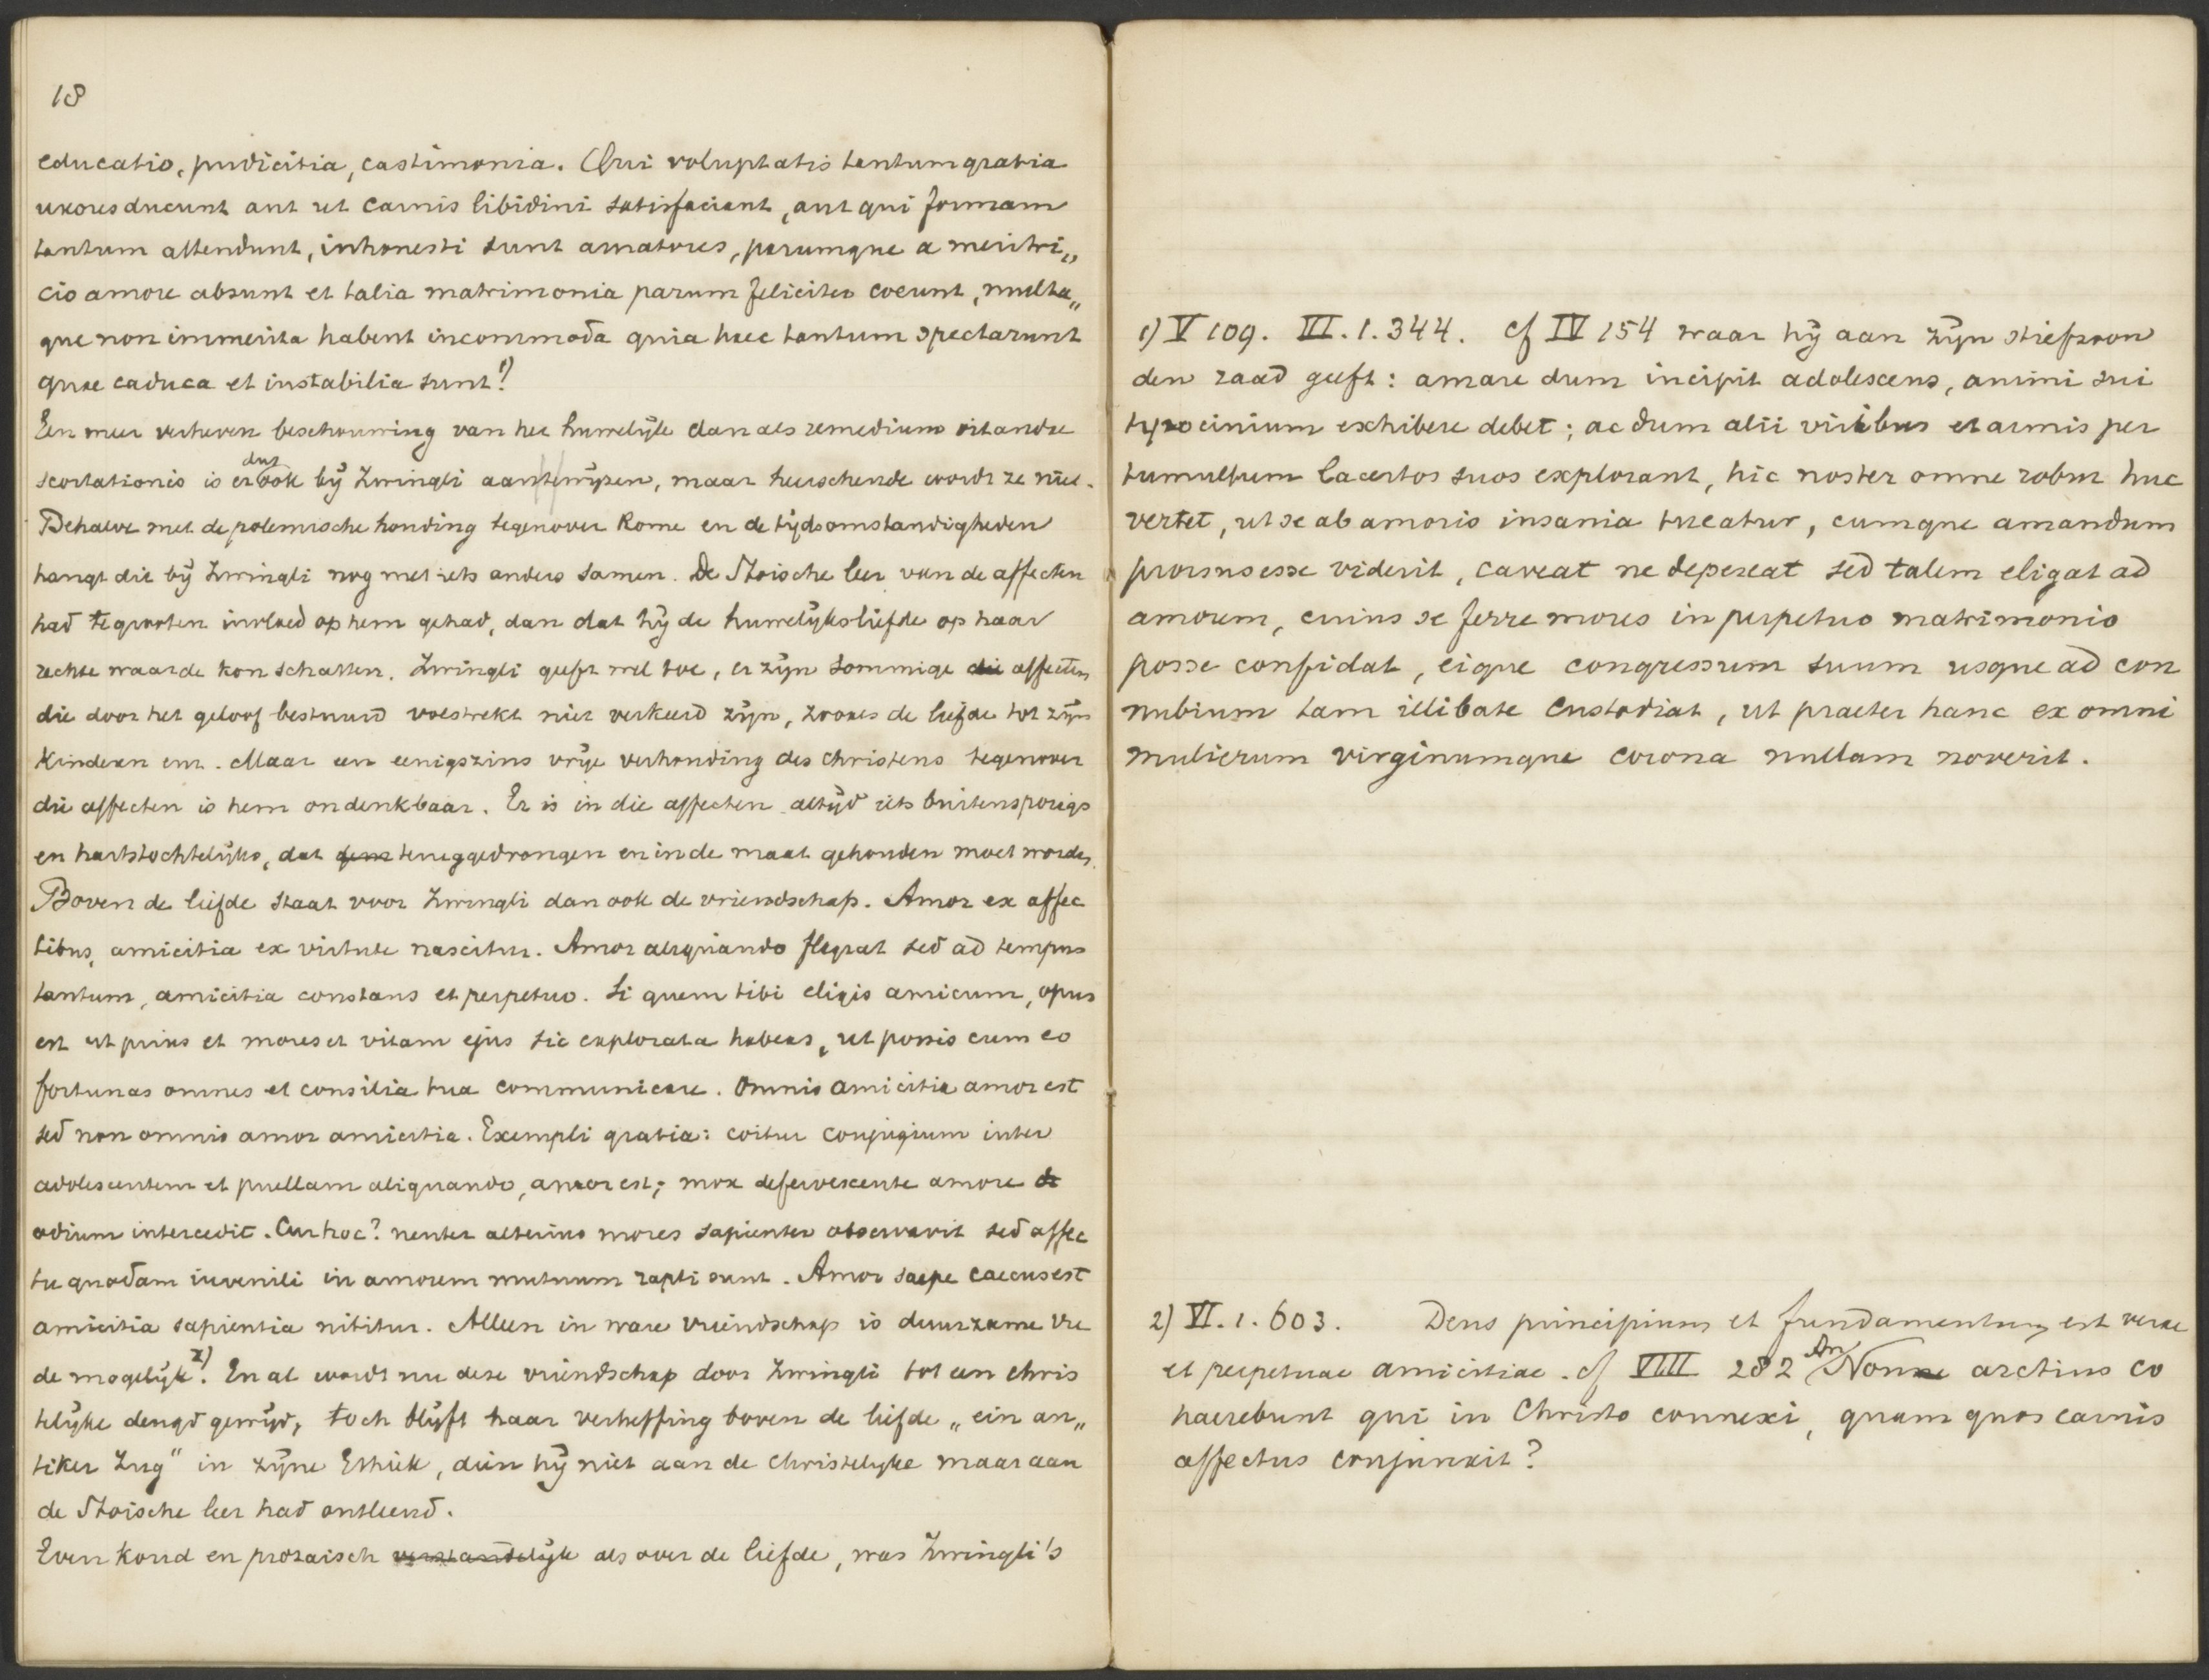 18
educatio, pudicitia, castimonia. Qui voluptatis tantum gratia
uxores ducunt aut ut carnis libidini satisfaciant, aut qui formam
tantum attendunt, inhonesti sunt amatores, parumque a meretri„
cio amore absunt et talia matrimonia parum feliciter coeunt, multa„
que non immerita habent incommoda quia haec tantum spectarunt
quae caduca et instabilia sunt 1)
Een meer verheven beschouwing van het huwelijk dan als remedium vitandae
scortationis is er dus ook bij Zwingli aan te wijzen, maar heerschende wordt ze niet.
Behalve met de polemische houding tegenover Rome en de tijdsomstandigheden
hangt dit bij Zwingli nog met iets anders samen. De Stoische leer van de affecten
had te grooten invloed op hem gehad, dan dat hij de huwelijksliefde op haar
rechte waarde kon schatten. Zwingli geeft wel toe, er zijn sommige die affecten
die door het geloof bestuurd volstrekt niet verkeerd zijn, zooals de liefde tot zijn
kinderen enz. Maar een eenigszins vrije verhouding des christens tegenover
die affecten is hem ondenkbaar. Er is in die affecten altijd iets buitensporigs
en hartstochtelijks, dat teruggedrongen en in de maat gehouden moet worden.
Boven de liefde staat voor Zwingli dan ook de vriendschap. Amor ex affec
tibus, amicitia ex virtute nascitur. Amor aliquando flagrat sed ad tempus
tantum, amicitia constans et perpetuo. Si quem tibi eligis amicum, opus
est ut prius et mores et vitam ejus sic explorata habeas, ut possis cum eo
fortunas omnes et consilia tua communicare. Omnis amicitia amor est
sed non omnis amor amicitia. Exempli gratia: coitur conjugium inter
adolescentem et puellam aliquando, amor est; mox defervescente amore
odium intercedit. Cur hoc? neuter alterius mores sapienter observavit sed affec
tu quodam iuvenili in amorem mutuum rapti sunt. Amor saepe caecus est
amicitia sapientia nititur. Alleen in ware vriendschap is duurzame vre
de mogelijk 2). En al wordt nu deze vriendschap door Zwingli tot een chris
telijke deugd gewijd, toch blijft haar verheffing boven de liefde „ein an„
tiker Zug“ in zijne Ethiek, dien hij niet aan de christelijke maar aan
de Stoische leer had ontleend.
Even koud en prozaisch verstandelijk als over de liefde, was Zwingli's
1) V 109. III. 1. 344. Cf IV 154 waar hij aan zijn stiefzoon
den raad geeft: amare dum incipit adolescens, animi sui
tyrocinium exhibere debet; ac dum alii viribus et armis per
tumultum lacertos suos explorant, hic noster omne robur huc
vertet, ut se ab amoris insania tueatur, cumque amandum
prorsus esse viderit, caveat ne depereat sed talem eligat ad
amorem, cuius se ferre mores in perpetuo matrimonio
posse confidat, eique congressum suum usque ad con
nubium tam illibate custodiat, ut praeter hanc ex omni
mulierum virginumque corona nullam noverit.
2) VI. 1. 603. Deus principium et fundamentum est verae
et perpetuae amicitiae. Cf VIII 282 An Non arctius co
haerebunt qui in Christo connexi, quam quos carnis
affectus conjunxit?